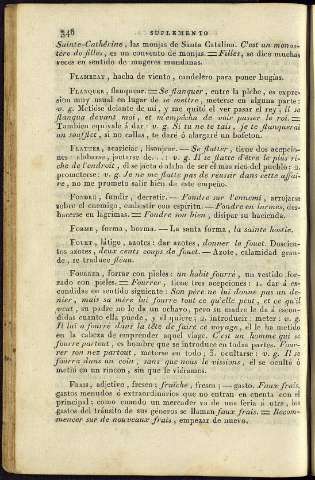 348 SUPLEMENTO
Sainte-Cathérine, las monjas de Santa Catalina. C'est un monas-
tère de filles, es un convento de monjas. = Filles, se dice muchas
veces en sentido de mugeres mundanas.
FLAMBEAU, hacha de viento, candelero para poner bugias.
FLANQUER, flanquear. = Se flanquer, entre la plebe, es expre-
sion muy usual en lugar de se mettre, meterse en alguna parte:
v. g. Metióse delante de mí, y me quitó el ver pasar el rey: il se
flanqua devant moi, et m'empêcha de voir passer le roi. =
Tambien equivale á dar: v. g. Si tu ne te tais, je te flanquerai
un soufflet, si no callas, te daré ó alargaré un bofeton.
FLATTER, acariciar, lisonjear. = Se flatter, tiene dos acepcio-
nes: alabarse, jactarse de.... v. g. Il se flatte d'être le plus ri-
che de l'endroit, él se jacta ó alaba de ser el mas rico del pueblo: 2.
prometerse: v. g. Je ne me flatte pas de réussir dans cette affai-
re, no me prometo salir bien de este empeño.
FONDRE, fundir, derretir. = Fondre sur l'ennemi, arrojarse
sobre el enemigo, embestir con espíritu. = Fondre en larmes, des-
hacerse en lágrimas. = Fondre son bien, disipar su hacienda.
FORME, forma, horma. = La santa forma, la sainte hostie.
FOUET, látigo, azotes: dar azotes, donner le fouet. Doscien-
tos azotes, deux cents coups de fouet. = Azote, calamidad gran-
de, se traduce fléau.
FOURRER, forrar con pieles: un habit fourré, un vestido for-
rado con pieles. = Fourrer, tiene tres acepciones: 1. dar á es-
condidas en sentido siguiente: Son père ne lui donne pas un de-
nier, mais sa mère lui fourre tout ce qu'elle peut, et ce qu'il
veut, su padre no le da un ochavo, pero su madre le da á escon-
didas cuanto ella puede, y él quiere: 2. introducir: meter: v. g.
Il lui a fourré dans la tête de faire ce voyage, el le ha metido
en la cabeza de emprender aquel viage. C'est un homme qui se
fourre partout, es hombre que se introduce en todas partes. Four-
rer son nez partout, meterse en todo: 3. ocultarse: v. g. Il se
fourra dans un coin, sans que nous le vissions, él se ocultó ó
metió en un rincon, sin que le viéramos.
FRAIS, adjetivo, fresco; fraîche, fresca; = gasto. Faux frais,
gastos menudos ó extraordinarios que no entran en cuenta con el
principal: como cuando un mercader va de una feria á otra, los
gastos del tránsito de sus géneros se llaman faux frais. = Recom-
mencer sur de nouveaux frais, empezar de nuevo.